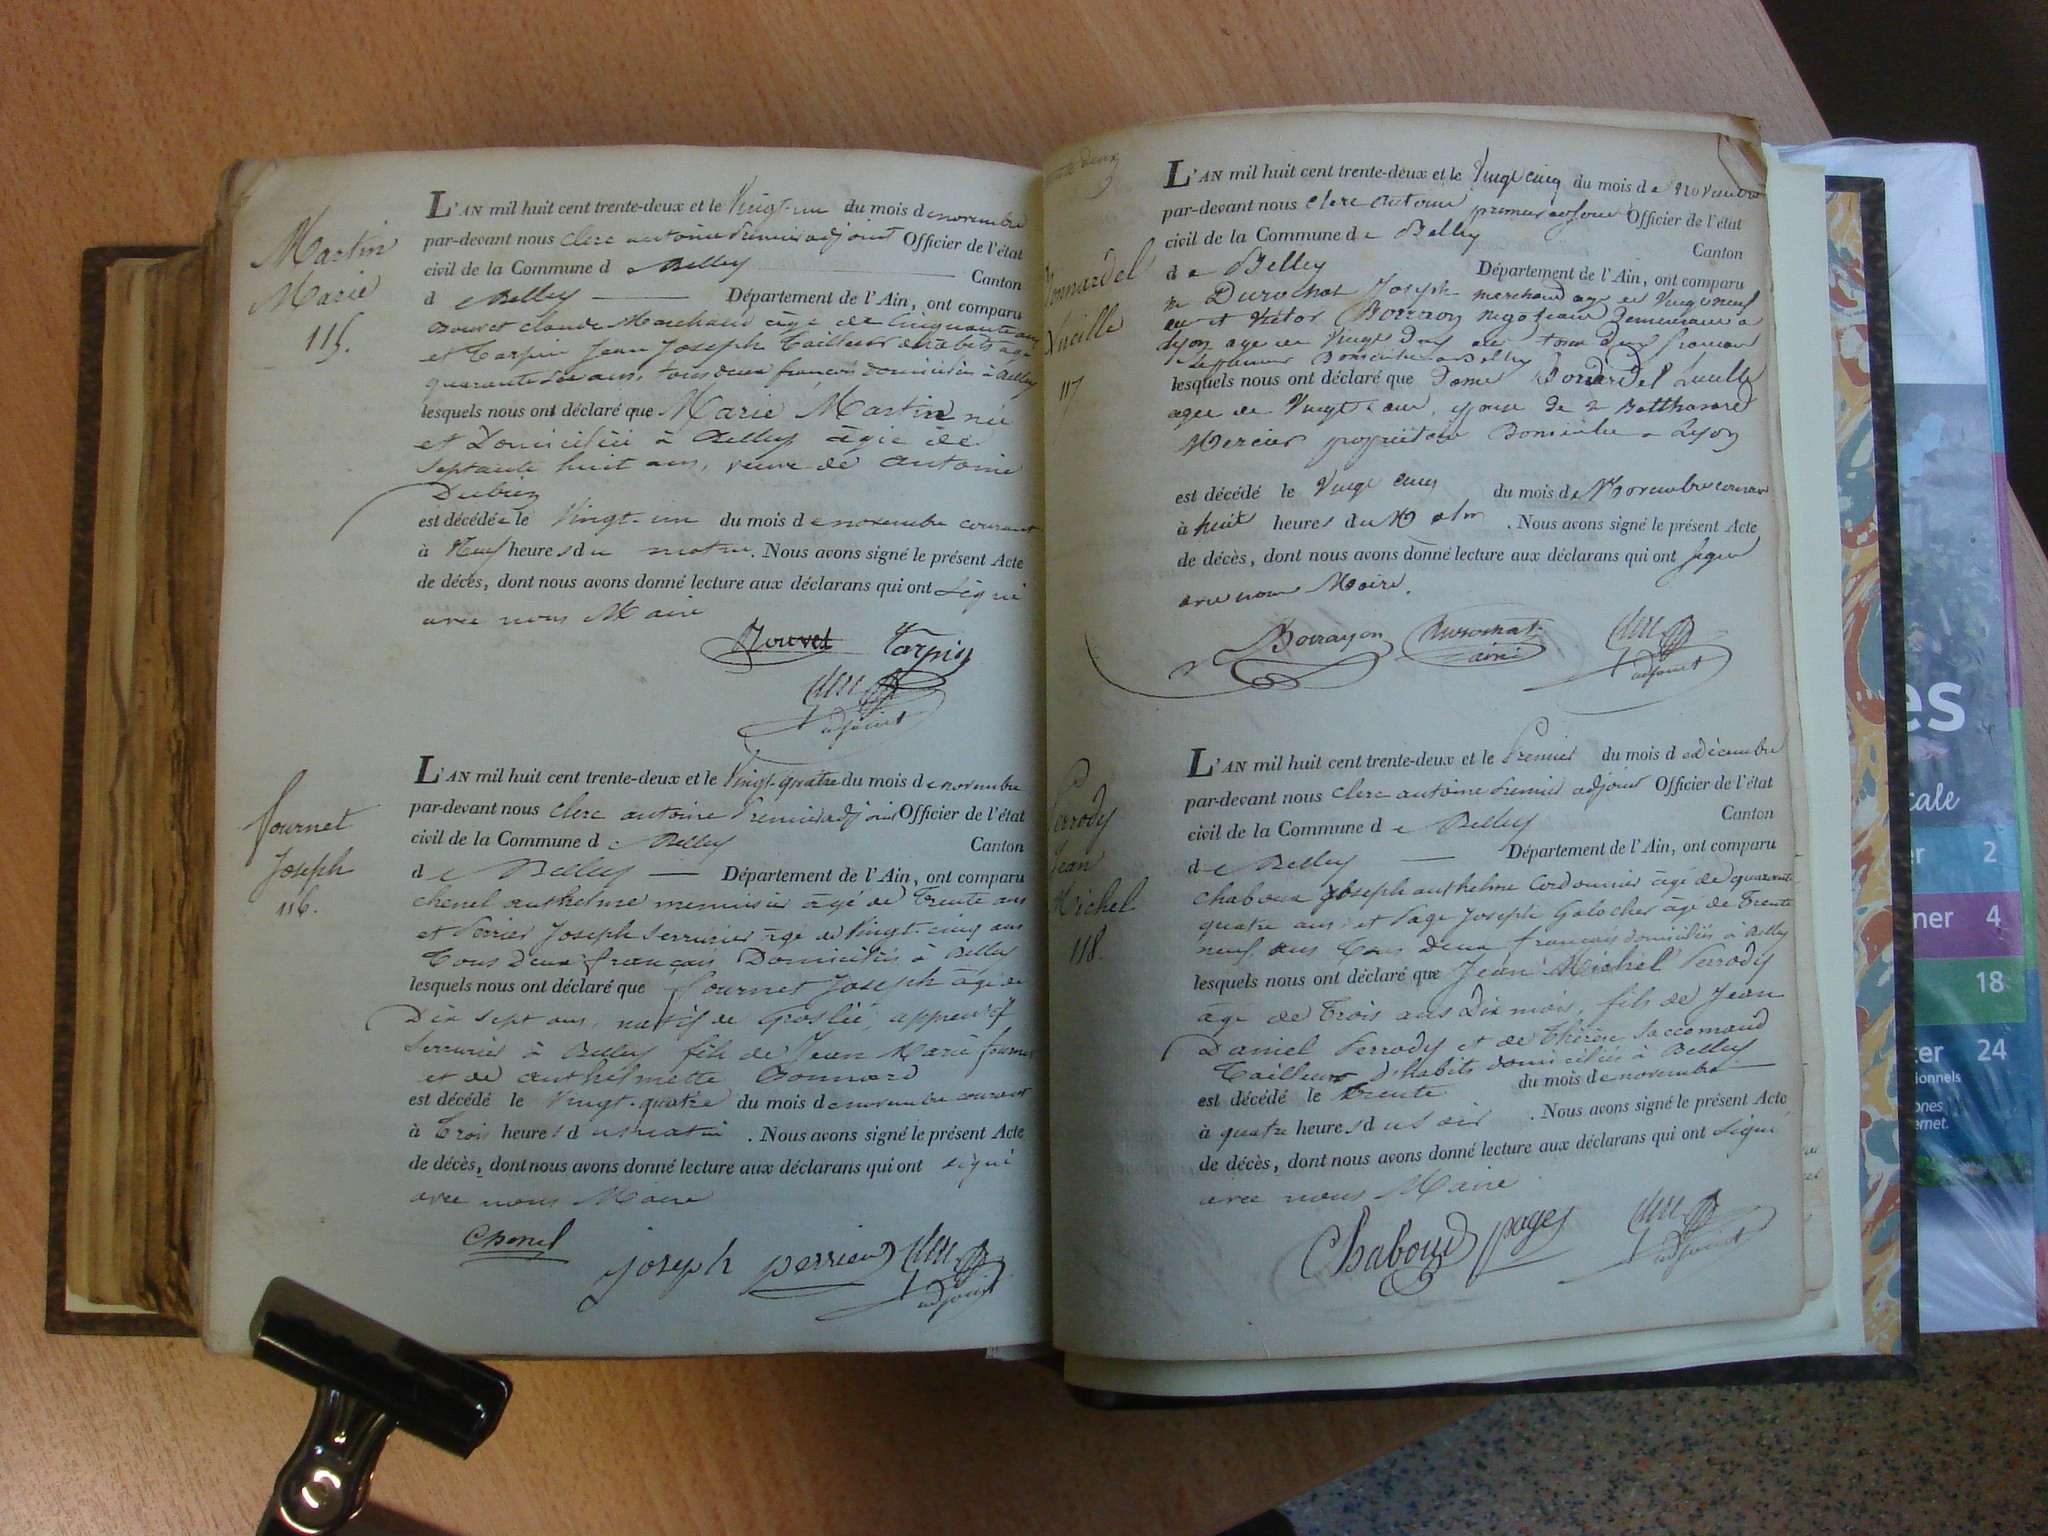 Martin
Marie
115.
L'AN mil huit cent trente-deux et le Vingt-un du mois de novembre
par-devant nous Clerc antoine Premier adjoint Officier de l'état
civil de la Commune de Belley Canton
de Belley Département de l'Ain, ont comparu
Bouvet Claude Marchand âgé de Cinquante ans
et Tarpin Jean Joseph Tailleur d'habits âgé
quarante six ans, tous deux français domiciliés à Belley
lesquels nous ont déclaré que Marie Martin née
et Domiciliée à Belley âgée de
Septante huit ans, veuve de antoine
Dubiez
est décédée le Vingt-un du mois de novembre courant
à Neuf heures du matin. Nous avons signé le présent Acte
de décès, dont nous avons donné lecture aux déclarans qui ont signé
avec nous Maire
Bouvet Tarpin
Clerc
adjoint
fournet
Joseph
116.
L'AN mil huit cent trente-deux et le Vingt-quatre du mois de novembre
par-devant nous Clerc antoine Premier adjoint Officier de l'état
civil de la Commune de Belley Canton
de Belley Département de l'Ain, ont comparu
Chenel anthelme menuisier âgé de Trente ans
et Perrier Joseph Serrurier âgé de Vingt-cinq ans
Tous Deux français Domiciliés à Belley
lesquels nous ont déclaré que fournet Joseph âgé de
Dix sept ans, natif de Groslée, apprentif
Serrurier à Belley fils de Jean Marie fournet
et de anthelmette Bonnard
est décédé le Vingt-quatre du mois de novembre courant
à Trois heures du matin. Nous avons signé le présent Acte
de décès, dont nous avons donné lecture aux déclarans qui ont signé
avec nous Maire
Chenel
joseph perrier Clerc
adjoint
deux
Donnardel
Lucille
117
L'AN mil huit cent trente-deux et le Vingt cinq du mois de Novembre
par-devant nous Clerc Antoine premier adjoint Officier de l'état
civil de la Commune de Belley
Canton
de Belley Département de l'Ain, ont comparu
Durochat Joseph marchand age de Vingt neuf
et Victor Borrayon négociant Demeurant a
Lyon age de Vingt Deux tous deux francais
Domicilié a Belley
lesquels nous ont déclaré que Dame Donardel Lucille
agee de Vingt, epouse de Balthazard
Mercier propriétaire Domicilié a Lyon
est décédé le Vingt cinq du mois de Novembre courant
à huit heures du Matin. Nous avons signé le présent Acte
de décès, dont nous avons donné lecture aux déclarans qui ont signé
avec nous Maire.
Borrayon Durochat Clerc
ainé adjoint
Perrody
Jean
Michel
118.
L'AN mil huit cent trente-deux et le Premier du mois de Décembre
par-devant nous Clerc antoine Premier adjoint Officier de l'état
civil de la Commune de Belley Canton
de Belley Département de l'Ain, ont comparu
Chaboux Joseph anthelme Cordonnier âgé de quarante
quatre ans, et Page Joseph Galocher âgé de Trente
neuf ans Tous Deux français domiciliés à Belley
lesquels nous ont déclaré que Jean Michel Perrody
âgé de Trois ans Dix mois, fils de Jean
Daniel Perrody et de Thérèse Saccomand
Tailleur d'habits domiciliés à Belley
est décédé le Trente du mois de novembre
à quatre heures du soir. Nous avons signé le présent Acte
de décès, dont nous avons donné lecture aux déclarans qui ont signé
avec nous Maire
Chaboud page Clerc
adjoint
es
cale
er 2
ner 4
18
ter 24
ionnels
ones
ernet.